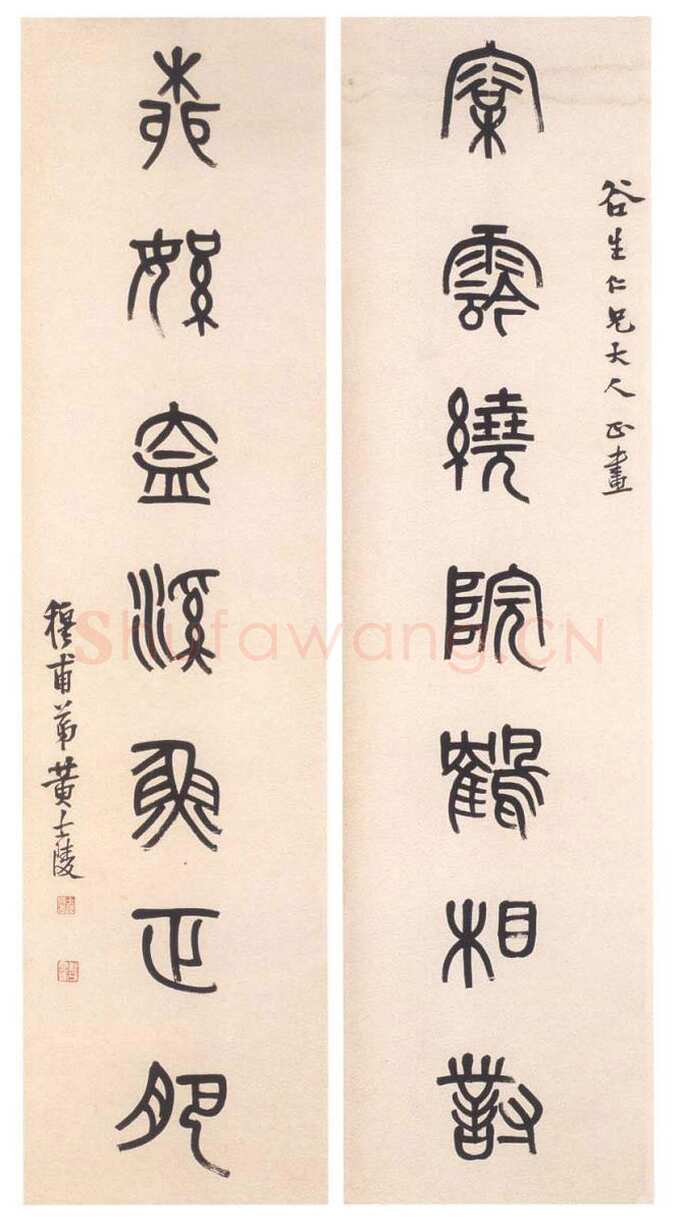 谷生仁兄大人正畫
松雲繞院鶴相對
柳絮盈溪魚正肥
穆甫弟黃士陵
Shufawang.CN